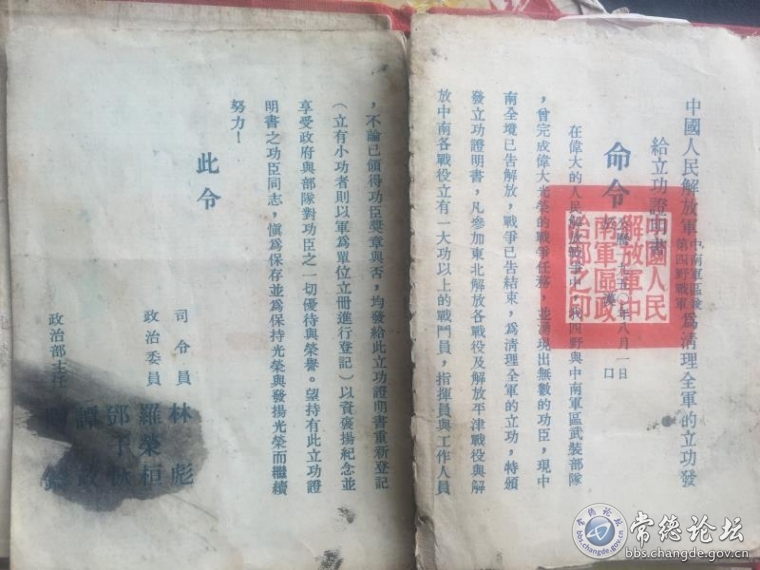 中國人民解放軍中南軍區暨第四野戰軍為清理全軍的立功發
給立功證明書
命令
公曆一九五〇年八月一日
在偉大的人民解放戰爭中,我四野與中南軍區武裝部隊
,曾完成偉大光榮的戰爭任務,並湧現出無數的功臣,現中
南全境已告解放,戰爭已告結束,為清理全軍的立功,特頒
發立功證明書,凡參加東北解放各戰役及解放平津戰役與解
放中南各戰役立有一大功以上的戰鬥員,指揮員與工作人員
中國人民
解放軍中
南軍區政
治部之印
,不論已領得功臣獎章與否,均發給此立功證明書重新登記
(立有小功者則以軍為單位立冊進行登記)以資褒揚紀念並
享受政府與部隊對功臣之一切優待與榮譽。望持有此立功證
明書之功臣同志,愼為保存並為保持光榮與發揚光榮而繼續
努力!
此令
司令員 林彪
政治委員 羅榮桓
鄧子恢
譚政
政治部主任
常德论坛
bbs.changde.gov.cn